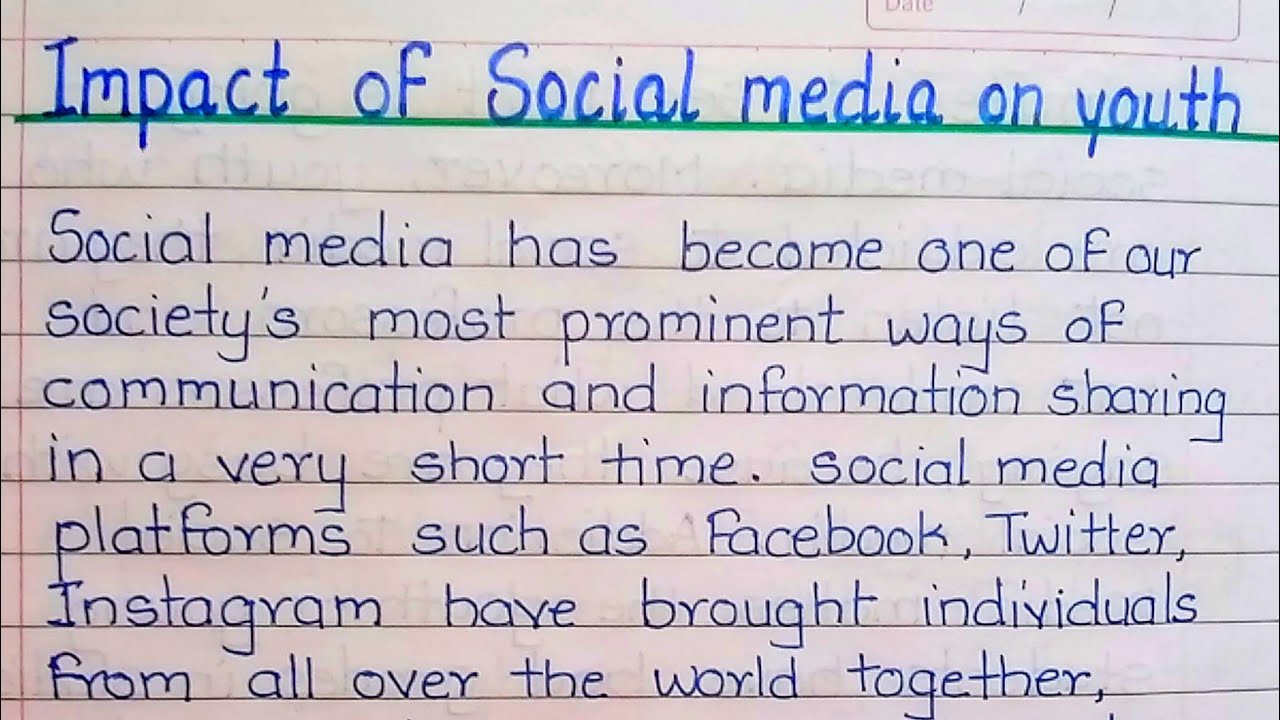 Date / /
Impact of Social media on youth
Social media has become one of our
society's most prominent ways of
communication and information sharing
in a very short time. social media
platforms such as Facebook, Twitter,
Instagram have brought individuals
from all over the world together,